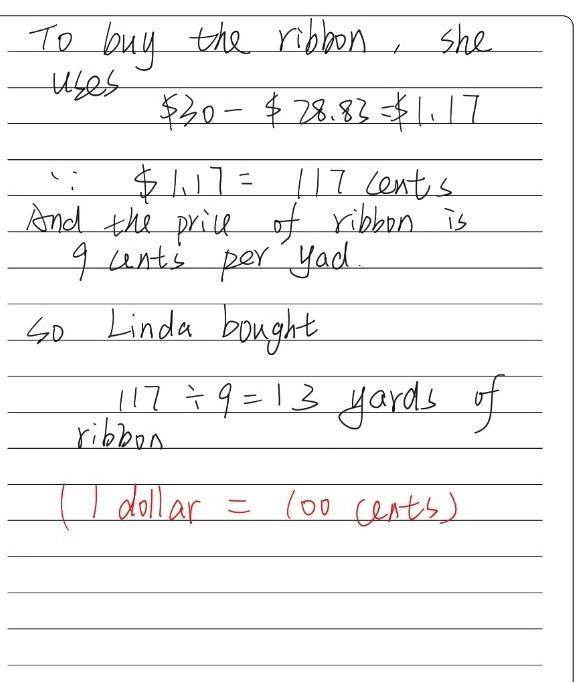 To buy the ribbon, she
uses
$30 - $28.83 = $1.17
∵ $1.17 = 117 cents
And the price of ribbon is
9 cents per yad.
so Linda bought
117 ÷ 9 = 13 yards of
ribbon
(1 dollar = 100 cents)